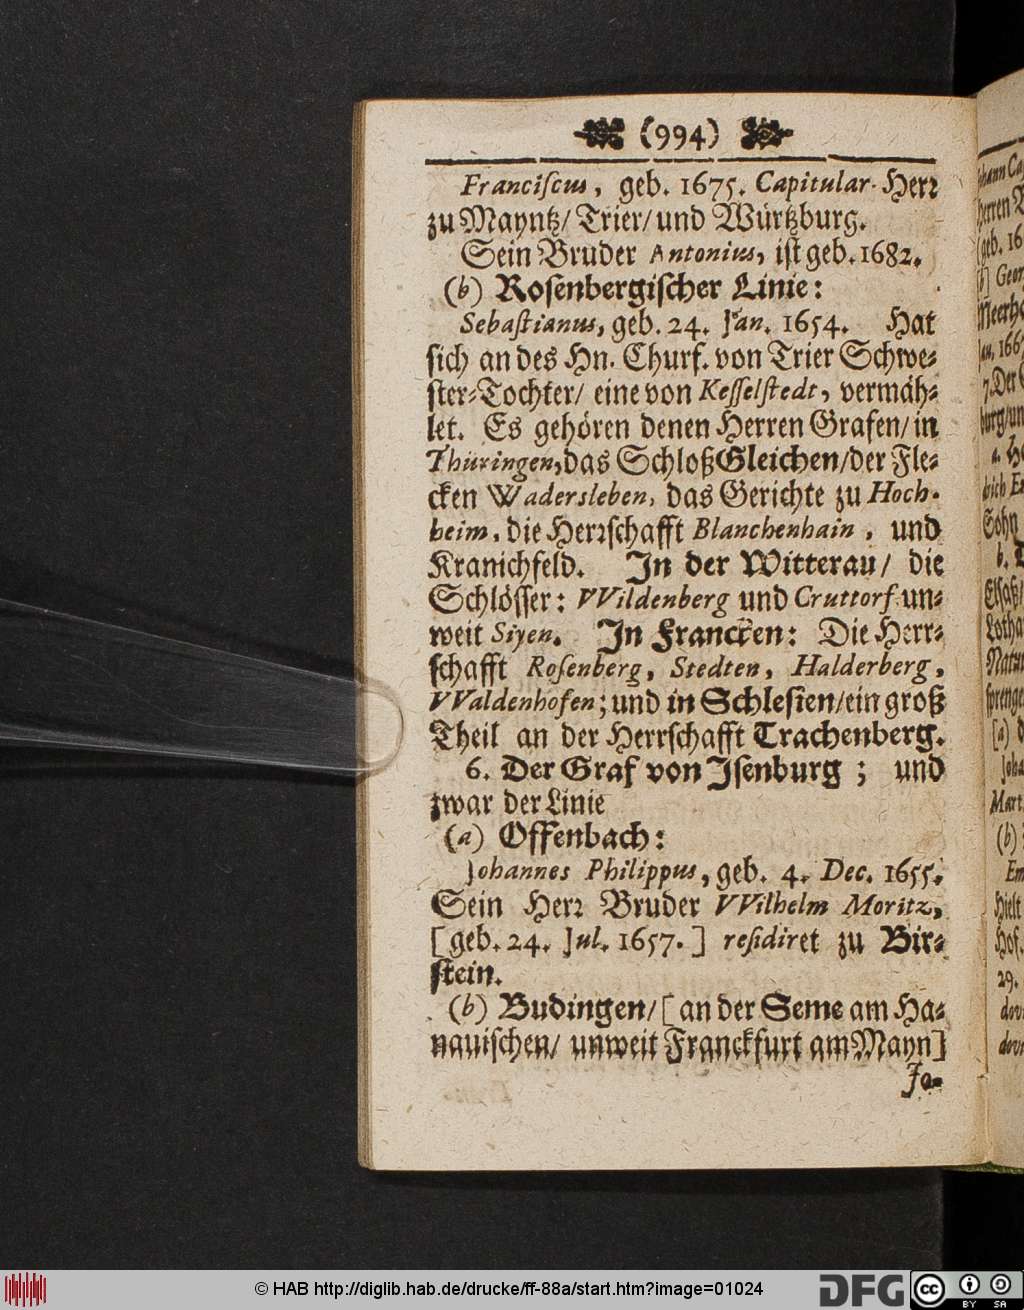 (994)
Franciſcus, geb. 1675. Capitular-Herꝛ
zu Mayntz/ Trier/ und Würtzburg.
Sein Bruder Antonius, iſt geb. 1682.
(b) Roſenbergiſcher Linie:
Sebaſtianus, geb. 24. Jan. 1654. Hat
ſich an des Hn. Churf. von Trier Schwe⸗
ſter⸗Tochter/ eine von Keſſelſtedt, vermäh⸗
let. Es gehören denen Herren Grafen/ in
Thüringen, das Schloß Gleichen/ der Fle⸗
cken Wadersleben, das Gerichte zu Hoch-
heim, die Herꝛſchafft Blanchenhain, und
Kranichfeld. In der Witterau/ die
Schlöſſer: VVildenberg und Cruttorf un⸗
weit Siyen. In Francken: Die Herr⸗
ſchafft Roſenberg, Stedten, Halderberg,
VValdenhofen; und in Schleſien/ ein groß
Theil an der Herrſchafft Trachenberg.
6. Der Graf von Iſenburg; und
zwar der Linie
(a) Offenbach:
Johannes Philippus, geb. 4. Dec. 1655.
Sein Herꝛ Bruder VVilhelm Moritz,
[geb. 24. Jul. 1657.] reſidiret zu Bir⸗
ſtein.
(b) Budingen/ [an der Seme am Ha⸗
nauiſchen/ unweit Franckfurt am Mayn]
Jo-
© HAB http://diglib.hab.de/drucke/ff-88a/start.htm?image=01024
DFG
cc
BY SA